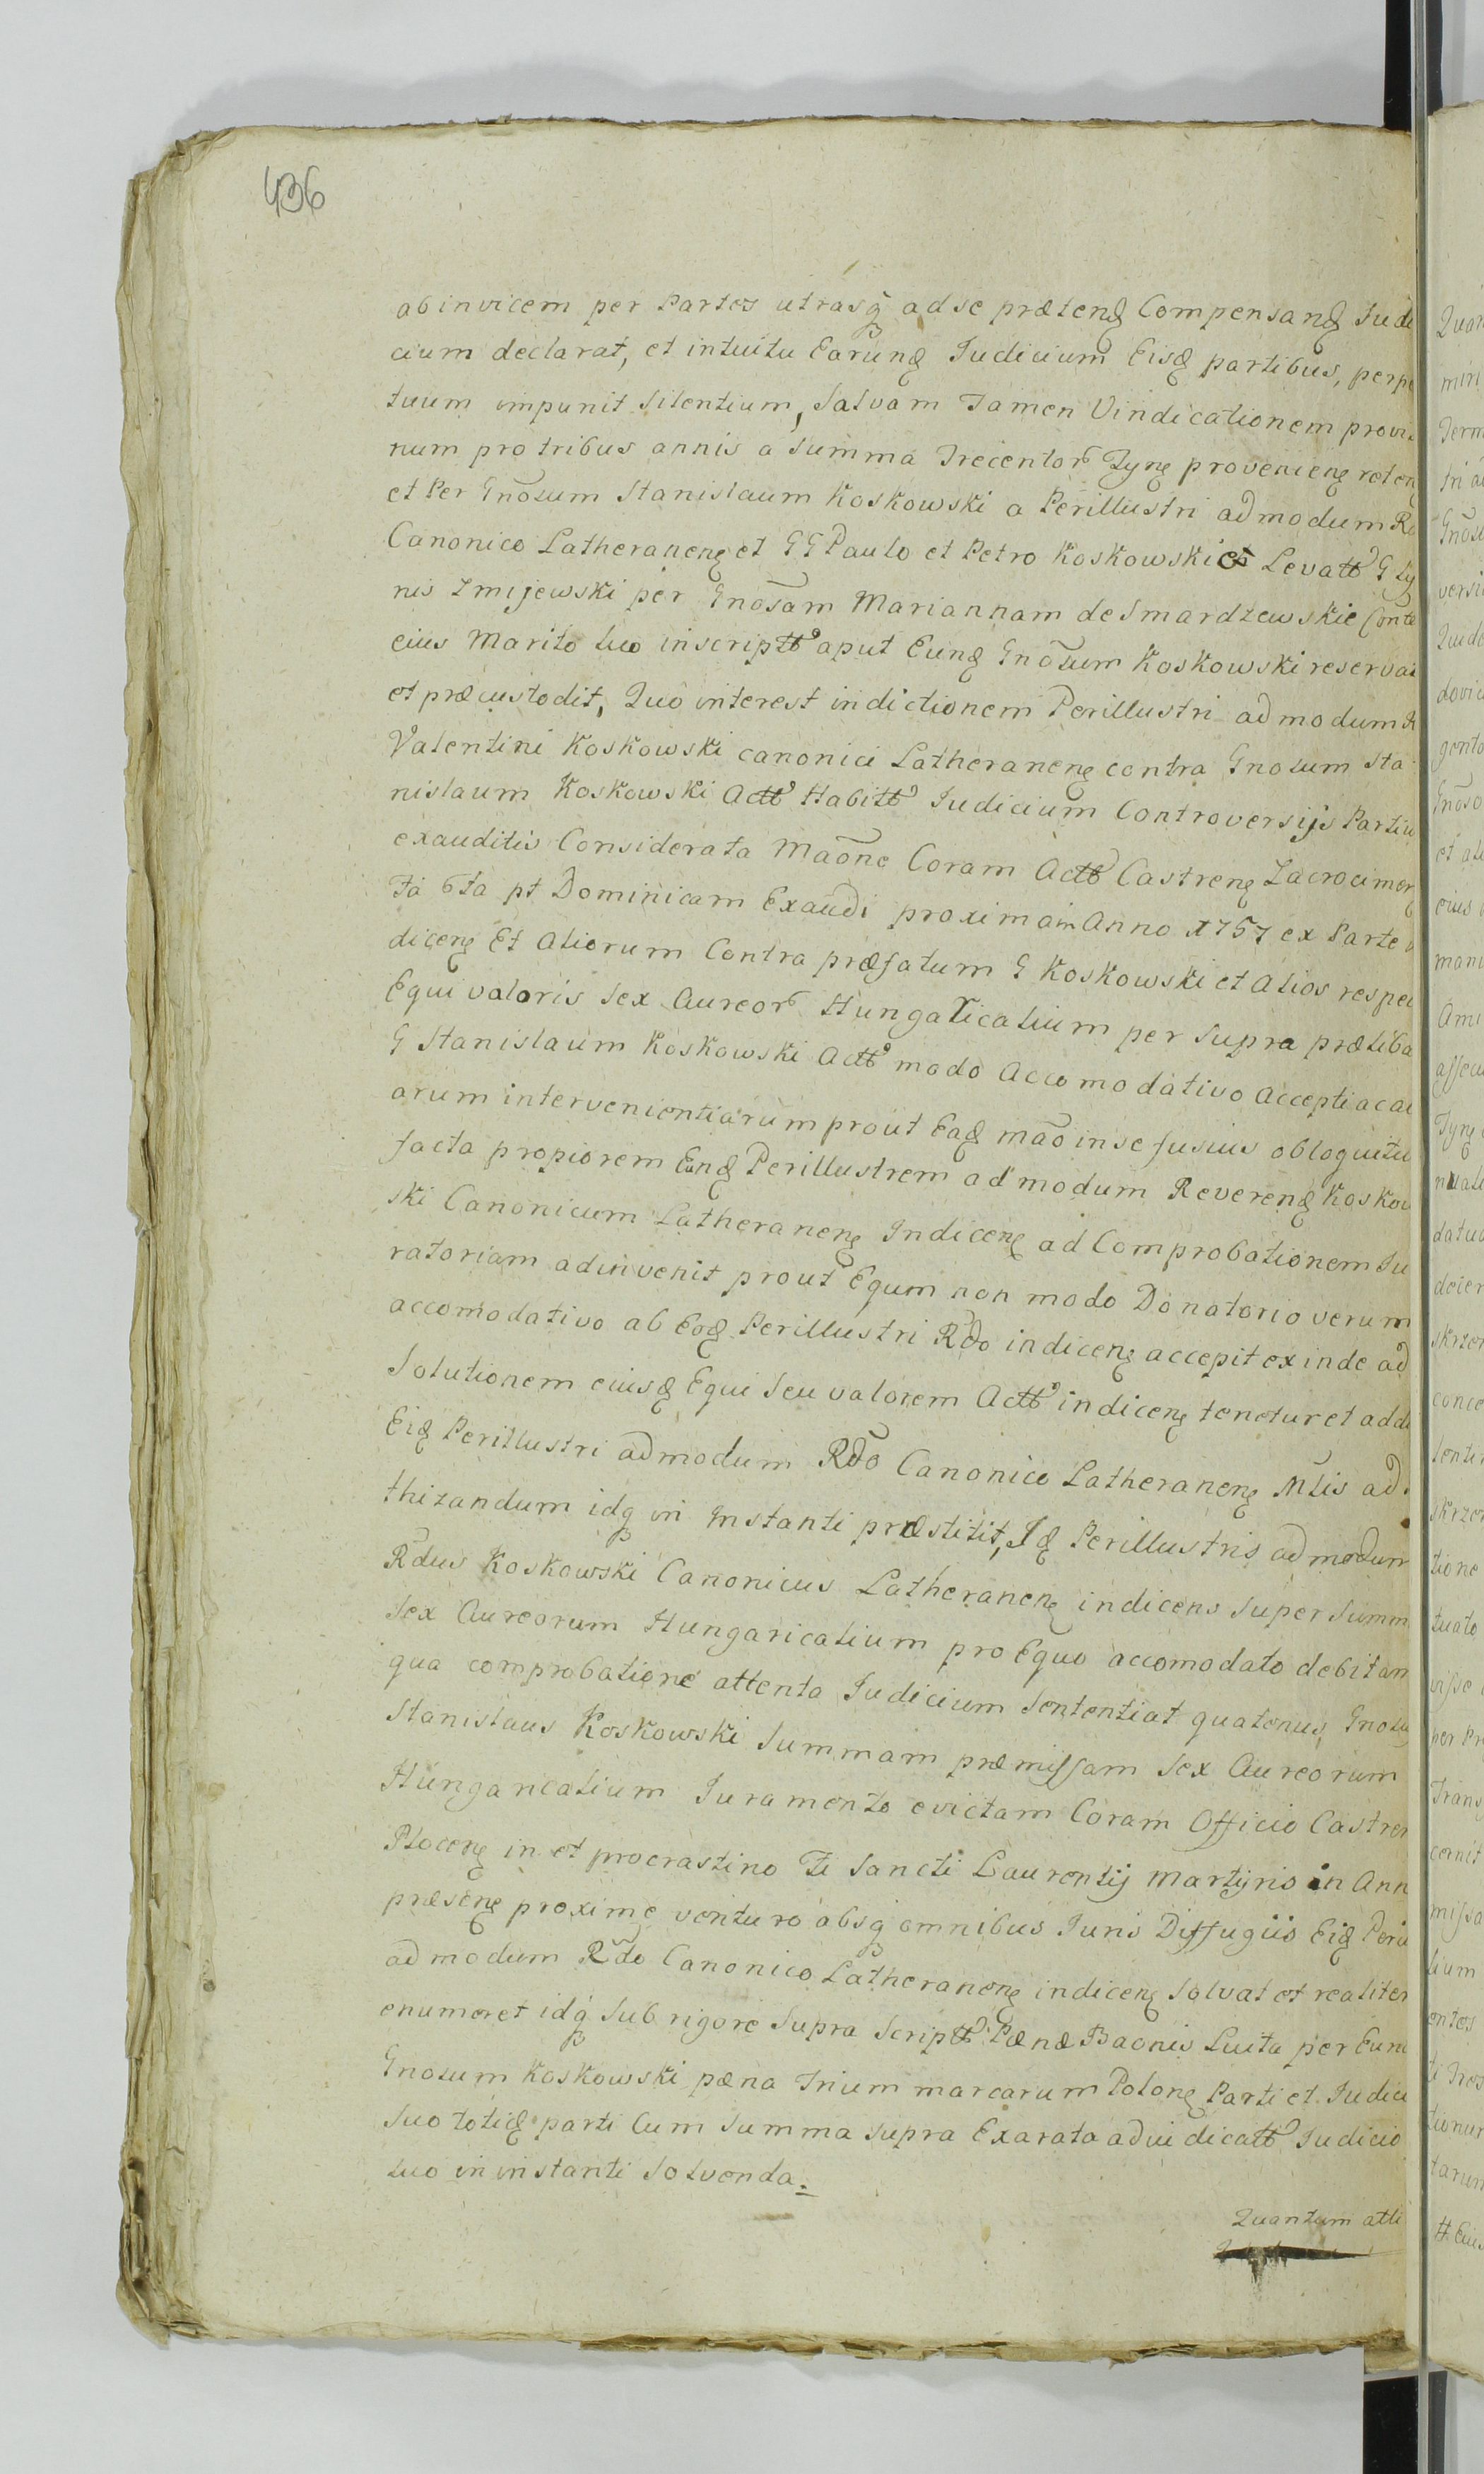 436
ab invicem per Partes utrasq ad se prætenđ Compensanđ Iudi
cium declarat, et intuitu Earunđ Iudicium Eisđ partibus, perpe
tuum impunit Silentium, Salvam Tamen Vindicationem provi
num pro tribus annis a Summa Trecentor Tyn proveniēn reten
et Per Gnosum Stanislaum Koskowski a Perillustri admodum R
Canonico Latheranen et GG Paulo et Petro Koskowski Levatt G
nis Zmijewski per Gnosam Mariannam de Smardzewskie Conto
eius Marito suo inscriptt aput Eunđ Gnosum Koskowski reserva
et præcustodit, Quo interest indictionem Perillustri admodum R
Valentini Koskowski canonici Latheranen contra Gnosum Sta
nislaum Koskowski Actt Habitt Iudicium Controversijs Partiu
exauditis Considerata Maone Coram Actt Castren Zacrocimen
Fa 6ta pt Dominicam Exaudi proximam Anno 1757 ex Parte
dicen Et Aliorum Contra præfatum G Koskowski et Alios respe
Equi valoris Sex Aureor Hungaricalium per Supra præliba
G Stanislaum Koskowski Actt modo Accomodativo Accepti ac a
arum intervenientiarum prout Eađ mao in se fusius obloquitu
facta propiorem Eunđ Perillustrem admodum Reverenđ Koskow
ski Canonicum Latheranen Indicen ad Comprobationem Iu
ratoriam adinvenit prout Equm non modo Donatorio verum
accomodativo ab Eođ Perillustri Rdo indicen accepit exinde ad
Solutionem eiusđ Equi Seu valorem Actt indicen tenetur et adđ
Eiđ Perillustri admodum Rdo Canonico Latheranen Mtis ad
thizandum idq in Instanti præstitit, Iđ Perillustris admodum
Rdus Koskowski Canonicus Latheranen indicens Super Summ
Sex Aureorum Hungaricalium pro Equo accomodato debitam
qua comprobatione attenta Iudicium Sententiat quatenus, Gnosu
Stanislaus Koskowski Summam præmissam Sex Aureorum
Hungaricalium Iuramento evictam Coram Officio Castren
Plocen in et procrastino Fi Sancti Laurentij Martyris in Ann
præsen proxime venturo absq omnibus Iuris Diffugiis Eiđ Peri
admodum Rdo Canonico Latheranen indicen Solvat et realiter
enumeret idq Sub rigore Supra Scriptt Pænæ Baonis Luita per Eun
Gnosum Koskowski pæna Trium marcarum Polon Parti et Iudici
Suo totiđ parti Cum Summa Supra Exarata adiudicatt Iudicio
suo in instanti Solvenda.
Quantum atti